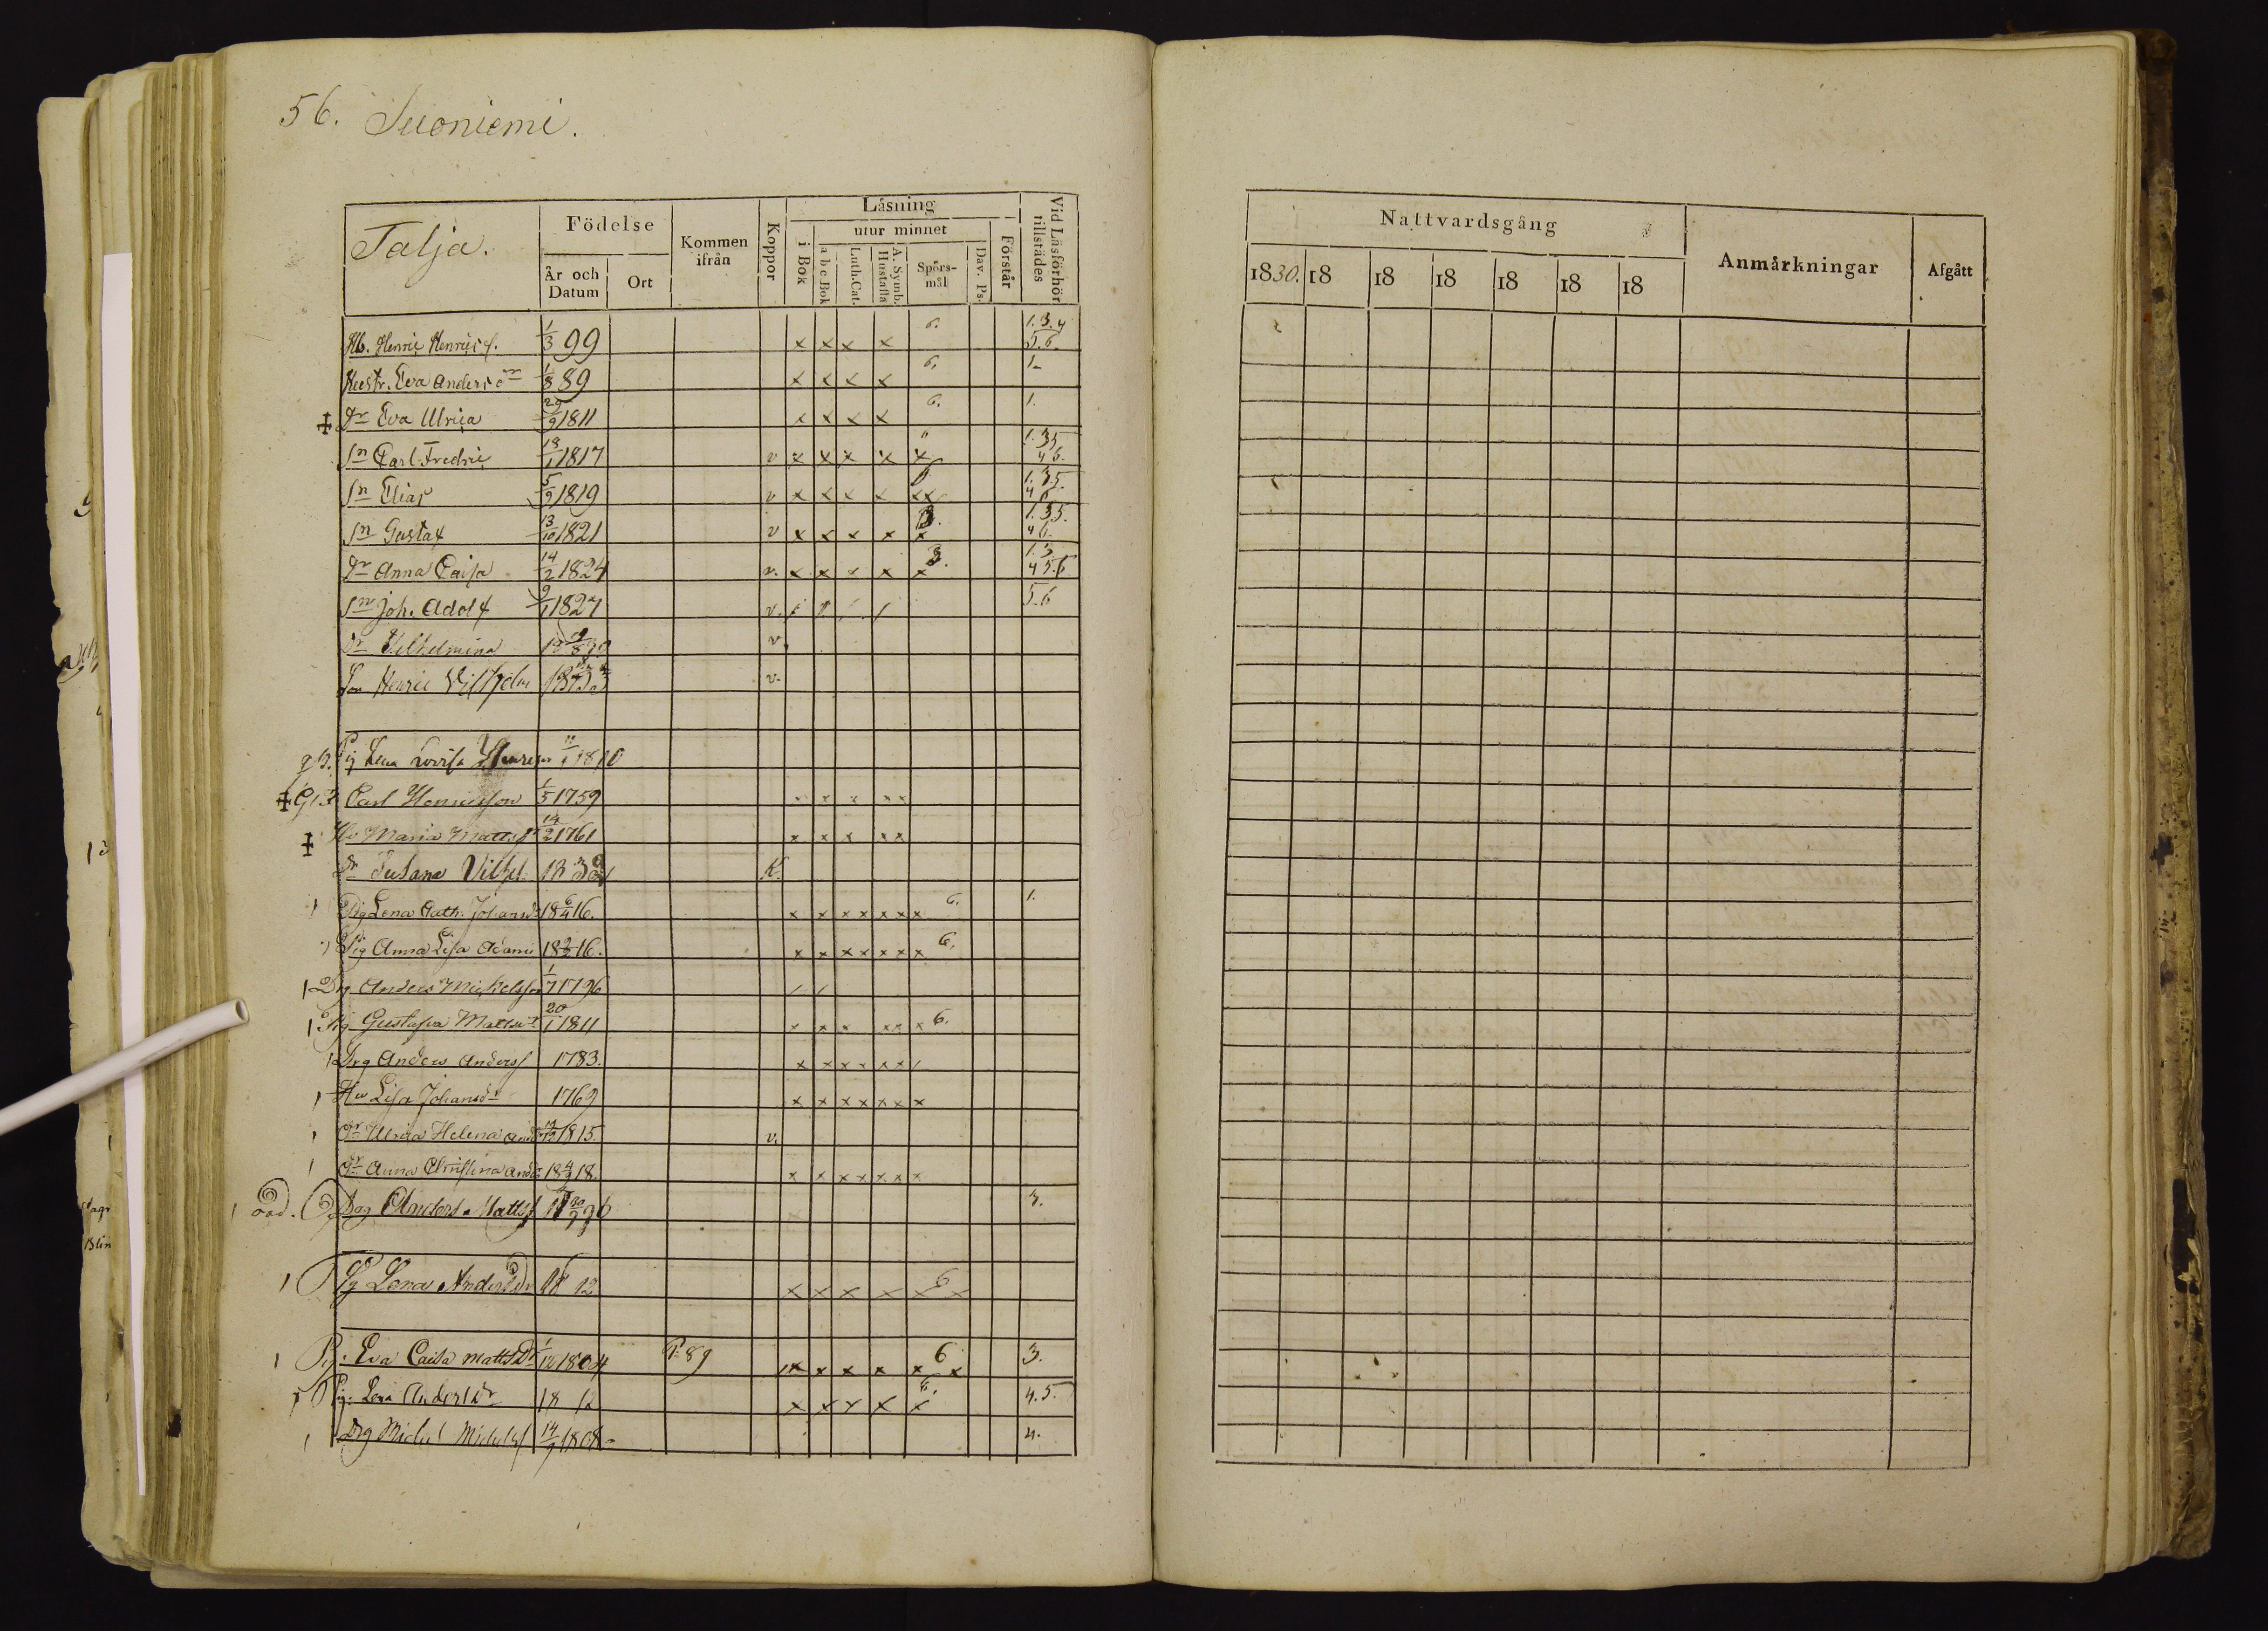 56. Suoniemi.
Talja.
Födelse
År och Datum
Ort
Kommen ifrån
Koppor
Läsning
i Bok
utur minnet
a b c Bok
Luth. Cat.
A. Symb. Hustafla
Spörs-mål
Dav. Ps.
Förstår
Vid Läsförhör tillstädes
Nattvardsgång
1830. 18 18 18 18 18 18
Anmärkningar
Afgått
Hb. Henric Henrics. 1/3 99 x x x x 6. 1. 3. 4 5. 6.
Hustr. Eva Anders dr 1/8 89 x x x x 6. 1.
‡ Dr Eva Ulrica 29/9 1811 x x x x 6. 1.
Sn Carl Fredric 18/1 1817 v x x x x x 1. 3 5 4 6.
Sn Elias 5/9 1819 v x x x x x x 1. 3. 5. 4 6
Sn Gustaf 13/10 1821 v x x x x x 3. 1. 3 5. 4 6.
Dr Anna Caisa 14/2 1824 v. x x x x x 3. 1. 3. 4 5. 6
Sn Joh. Adolf 9/1 1827 v. 5. 6
Dr Vilhelmina v.
Son Henric Vilhelm 1833 v.
Pig Lena Lovisa 1810
‡ Carl Henricsson 1/5 1759 x x x x x
‡ Hu Maria Matts dr 14/2 1761 x x x x x
Dr Susana Vilhel. K.
1 Pig Lena Cath. Johansdr 18 6/4 16. x x x x x x x 6. 1.
Pig Anna Lisa Adams 18 16. x x x x x x x 6.
1 Drg Anders Michelsson 1/7 1796
1 Pig Gustafva Mattsdr 20/1 1811 x x x x x x 6.
1 Drg Anders Anderss 1783. x x x x x x
1 Hu Lisa Johansdr 1769 x x x x x x x
1 Dr Ulrica Helena And. 1815. v.
1 Dr Anna Christina And. 18 18. x x x x x x x
1 Drg Anders Mattss 96 3.
1 Pig Lena Andersdr 18 12 x x x x x x 6
1 Pig. Eva Caisa Mattsdr 1/12 1804 P. 89 x x x x x x 6 3.
1 Pig. Lena Andersdr 18 12 x x x x x 6. 4. 5.
1 Drg Michel Michelss 14/9 1808 4.